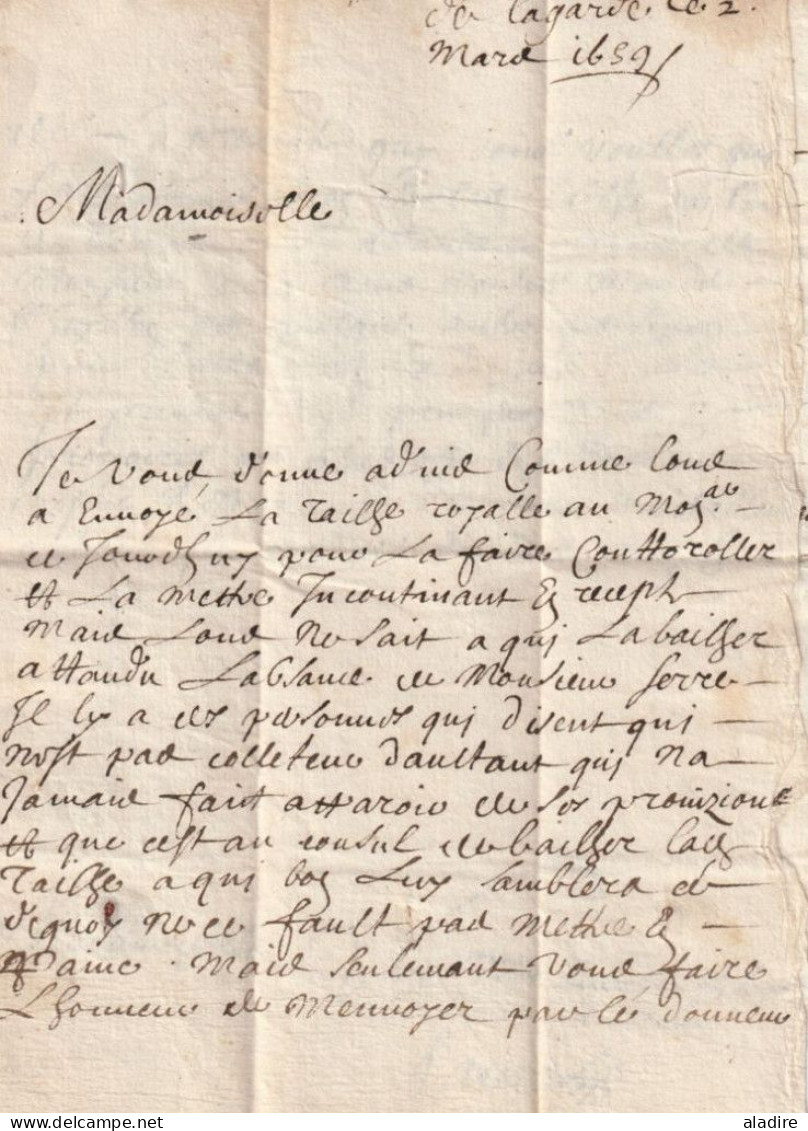 de lagarde ce 2
Mars 1659
Madamoiselle
Je vous donne advis Comme lons
a Envoyé La Taille royalle au
de pour La faire Conttoroller
et La mettre Incontinant En recepte
Mais Lons ne sait a qui La bailher
attandu Labsance de Monsieur serre
Il ly a des personnes qui disent qui
nest pas colleteur daultant qui na
Jamais faict de ses provizions
et que cest au consul de bailher lad
Tailhe a qui bon Luy samblera de
dequoy ne ce fault pas mettre En
paine. Mais seulemant vous faire
Lhonneur de Menvoyer par le donneur
delcampe.net
aladire